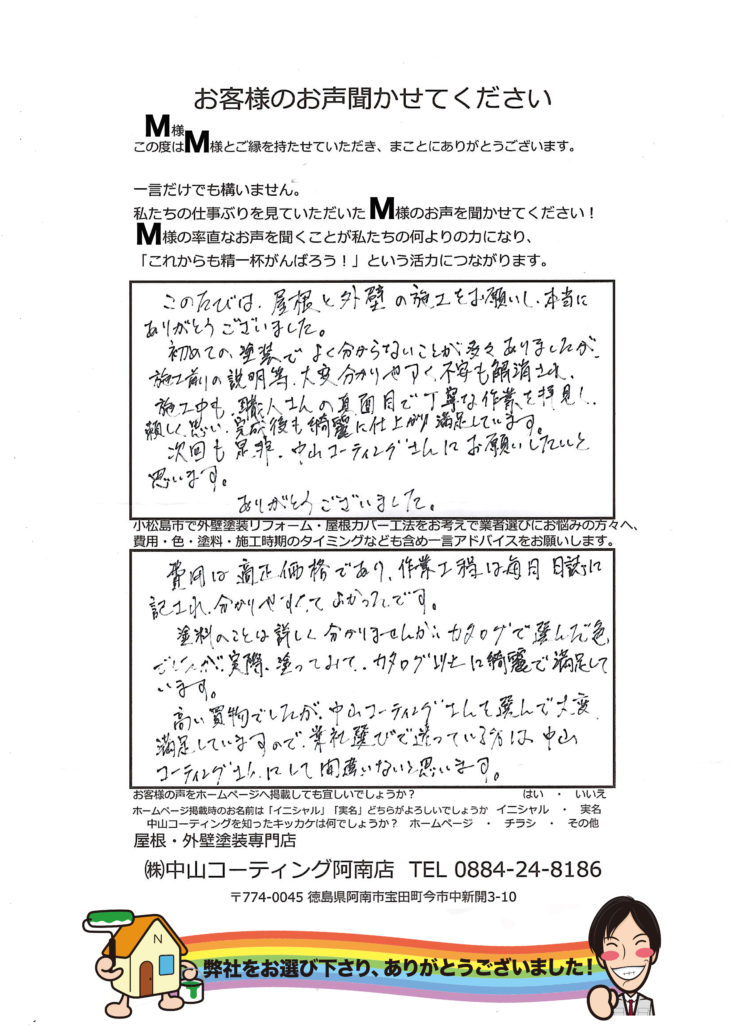 お客様のお声聞かせてください
M様
この度はM様とご縁を持たせていただき、まことにありがとうございます。
一言だけでも構いません。
私たちの仕事ぶりを見ていただいたM様のお声を聞かせてください！
M様の率直なお声を聞くことが私たちの何よりの力になり、
「これからも精一杯がんばろう！」という活力につながります。
このたびは、屋根と外壁の施工をお願いし、本当に
ありがとうございました。
初めての塗装でよく分からないことが多々ありましたが、
施工前の説明等、大変分かりやすく、不安も解消され、
施工中も、職人さんの真面目で丁寧な作業を拝見し、
頼しく思い、完成後も綺麗に仕上がり満足しています。
次回も是非、中山コーティングさんにお願いしたいと
思います。
ありがとうございました。
小松島市で外壁塗装リフォーム・屋根カバー工法をお考えで業者選びにお悩みの方々へ、
費用・色・塗料・施工時期のタイミングなども含め一言アドバイスをお願いします。
費用は適正価格であり、作業工程は毎日日誌に
記され、分かりやすくてよかったです。
塗料のことは詳しく分かりませんが、カタログで選んだ色
でしたが、実際、塗ってみて、カタログ以上に綺麗で満足して
います。
高い買物でしたが、中山コーティングさんを選んで大変
満足していますので、業社選びで迷っている方は、中山
コーティングさんにして間違いないと思います。
お客様の声をホームページへ掲載しても宜しいでしょうか？ はい ・ いいえ
ホームページ掲載時のお名前は「イニシャル」「実名」どちらがよろしいでしょうか イニシャル ・ 実名
中山コーティングを知ったキッカケは何でしょうか？ ホームページ ・ チラシ ・ その他
屋根・外壁塗装専門店
㈱中山コーティング阿南店 TEL 0884-24-8186
〒774-0045 徳島県阿南市宝田町今市中新開3-10
N
弊社をお選び下さり、ありがとうございました！